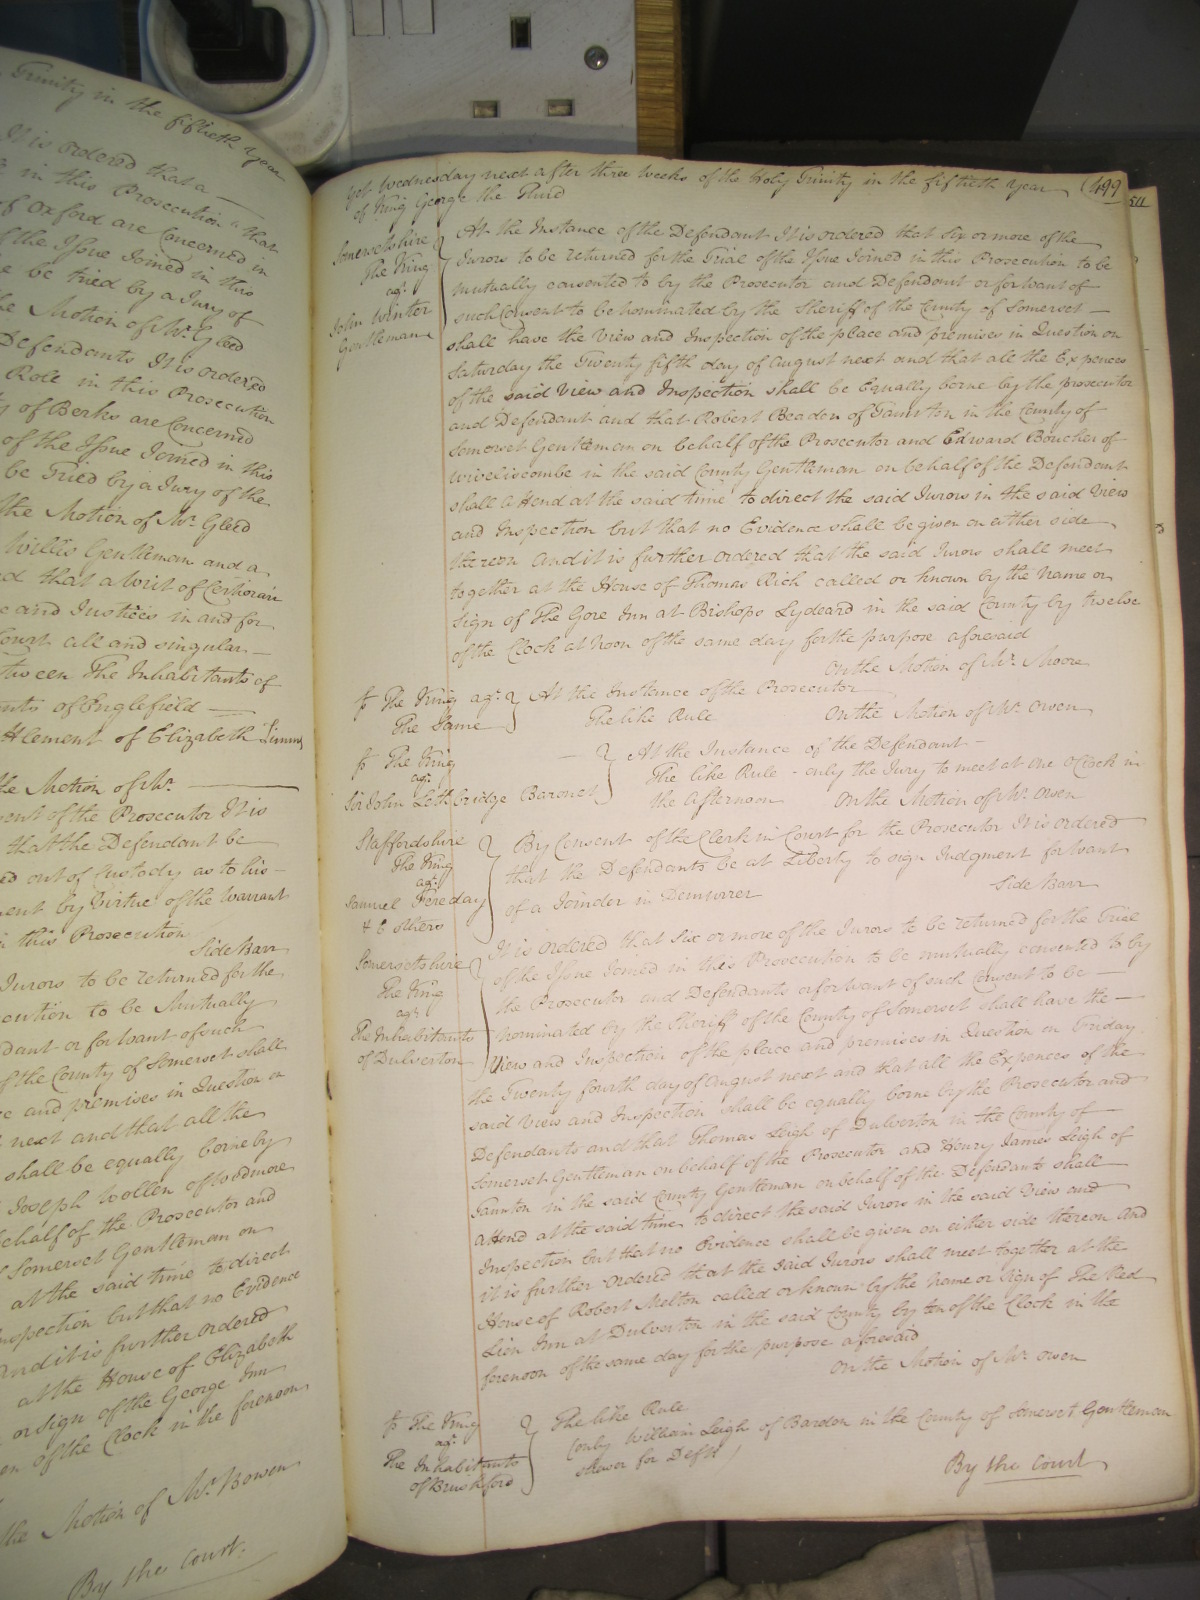 Trinity in the fiftieth Year
It is ordered that a
in this Prosecution "that
of Oxford are Concerned in
of the Issue Joined in this
be tried by a Jury of
the Motion of Mr. Gleed
Defendants It is ordered
Role in this Prosecution
of Berks are Concerned
of the Issue Joined in this
be Tried by a Jury of the
the Motion of Mr. Gleed
Willis Gentleman and a
that a Writ of Certiorari
and Justices in and for
Court all and singular
The Inhabitants of
of Englefield
of Elizabeth Simms
the Motion of Mr.
of the Prosecutor It is
that the Defendant be
out of Custody as to his
by Virtue of the Warrant
in this Prosecution
Side Barr
Jurors to be returned for the
to be Mutually
or for want of such
of the County of Somerset shall
and premises in Question on
next and that all the
shall be equally borne by
Joseph Wollen of Wedmore
behalf of the Prosecutor and
Somerset Gentleman on
at the said time to direct
Inspection but that no Evidence
And it is further ordered
at the House of Elizabeth
or sign of the George Inn
of the Clock in the forenoon
the Motion of Mr. Bowen
By the Court.
yet Wednesday next after three Weeks of the Holy Trinity in the fiftieth Year
499
511
of King George the Third
Somersetshire
The King
agt.
John Winter
Gentleman
At the Instance of the Defendant It is ordered that six or more of the
Jurors to be returned for the Trial of the Issue Joined in this Prosecution to be
mutually consented to by the Prosecutor and Defendant or for want of
such Consent to be nominated by the Sheriff of the County of Somerset
shall have the View and Inspection of the place and premises in Question on
Saturday the Twenty fifth day of August next and that all the Expences
of the said View and Inspection shall be Equally borne by the prosecutor
and Defendant and that Robert Beadon of Taunton in the County of
Somerset Gentleman on behalf of the Prosecutor and Edward Boucher of
Wiveliscombe in the said County Gentleman on behalf of the Defendant
shall attend at the said time to direct the said Jurors in the said View
and Inspection but that no Evidence shall be given on either side
thereon And it is further ordered that the said Jurors shall meet
together at the House of Thomas Rich called or known by the Name or
sign of The Gore Inn at Bishops Lydeard in the said County by twelve
of the Clock at Noon of the same day for the purpose aforesaid
On the Motion of Mr. Moore
The King agt.
The Same
At the Instance of the Prosecutor
The like Rule On the Motion of Mr. Owen
The King
agt.
Sir John Lethbridge Baronet
At the Instance of the Defendant
The like Rule - only the Jury to meet at one o'Clock in
the Afternoon On the Motion of Mr. Owen
Staffordshire
The King
agt.
Samuel Fereday
& 6 Others
By Consent of the Clerk in Court for the Prosecutor It is ordered
that the Defendants be at Liberty to sign Judgment for Want
of a Joinder in Demurrer Side Barr
Somersetshire
The King
agt.
The Inhabitants
of Dulverton
It is ordered that Six or more of the Jurors to be returned for the Trial
of the Issue Joined in this Prosecution to be mutually consented to by
the Prosecutor and Defendants or for want of such Consent to be
nominated by the Sheriff of the County of Somerset shall have the
View and Inspection of the place and premises in Question on Friday
the Twenty fourth day of August next and that all the Expences of the
said View and Inspection shall be equally borne by the Prosecutor and
Defendants and that Thomas Leigh of Dulverton in the County of
Somerset Gentleman on behalf of the Prosecutor and Henry James Leigh of
Taunton in the said County Gentleman on behalf of the Defendants shall
attend at the said time to direct the said Jurors in the said View and
Inspection but that no Evidence shall be given on either side thereon And
it is further ordered that the said Jurors shall meet together at the
House of Robert Melton called or known by the Name or Sign of The Red
Lion Inn at Dulverton in the said County by ten of the Clock in the
forenoon of the same day for the purpose aforesaid
On the Motion of Mr. Owen
The King
agt.
The Inhabitants
of Brushford
The like Rule
(only William Leigh of Bardon in the County of Somerset Gentleman
Shower for Defts.)
By the Court